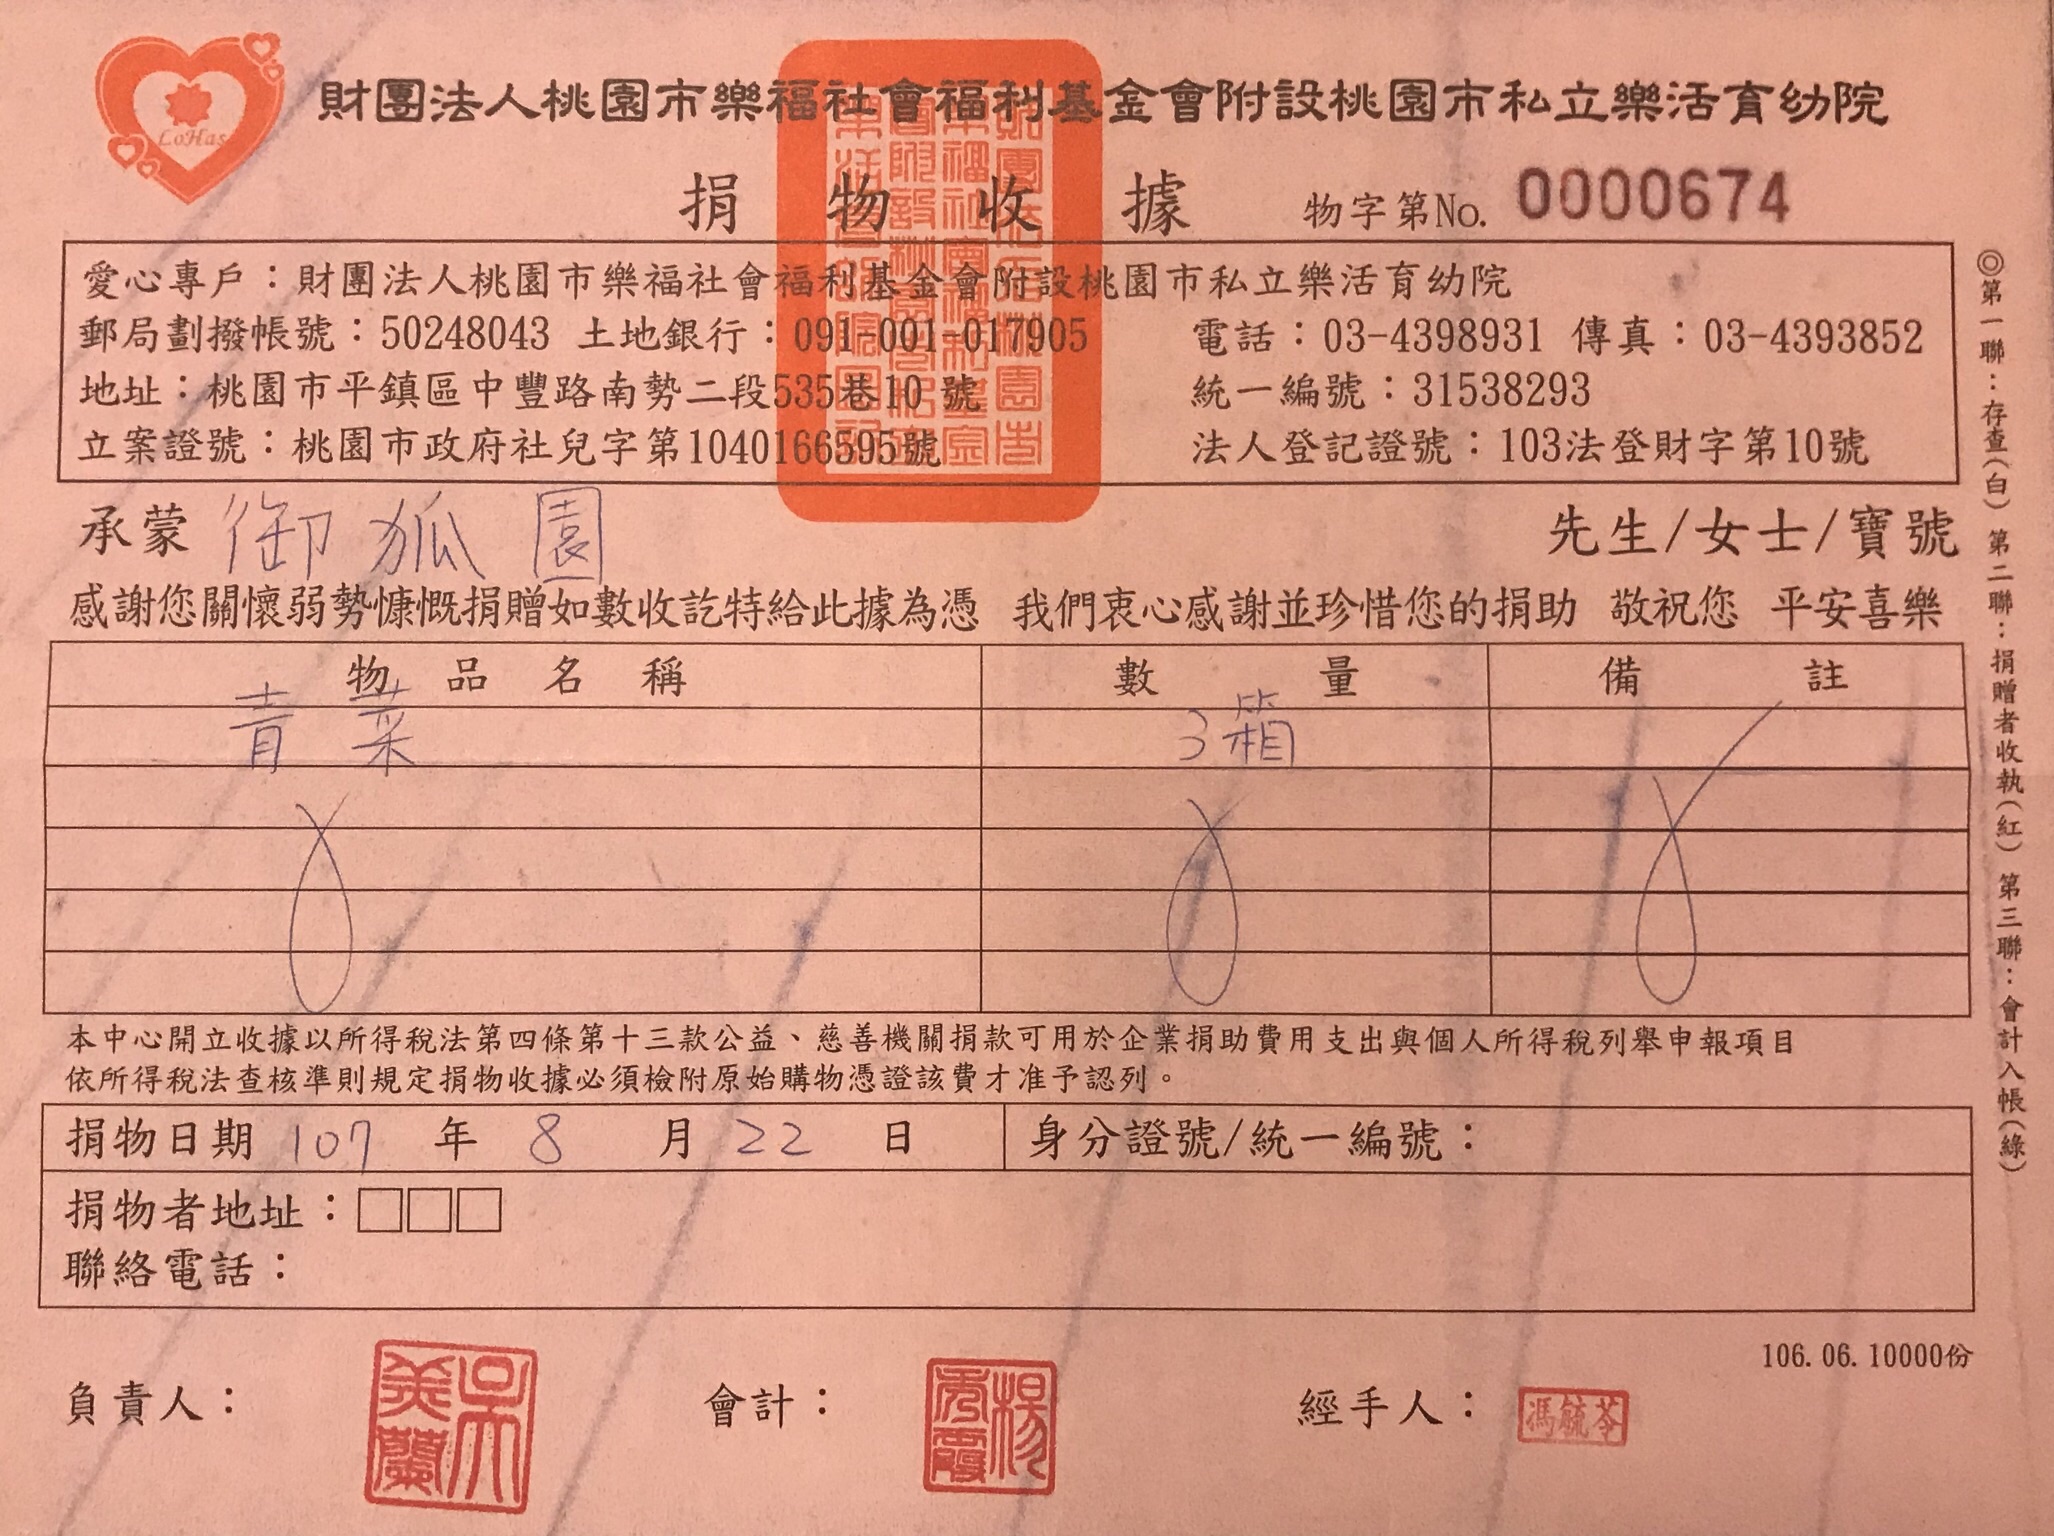 LoHas
財團法人桃園市樂福社會福利基金會附設桃園市私立樂活育幼院
捐物收據 物字第No. 0000674
愛心專戶：財團法人桃園市樂福社會福利基金會附設桃園市私立樂活育幼院
郵局劃撥帳號：50248043 土地銀行：091-001-017905 電話：03-4398931 傳真：03-4393852
地址：桃園市平鎮區中豐路南勢二段535巷10號 統一編號：31538293
立案證號：桃園市政府社兒字第1040166595號 法人登記證號：103法登財字第10號
承蒙 御狐園 先生/女士/寶號
感謝您關懷弱勢慷慨捐贈如數收訖特給此據為憑 我們衷心感謝並珍惜您的捐助 敬祝您 平安喜樂
物品名稱 數量 備註
青菜 3箱
本中心開立收據以所得稅法第四條第十三款公益、慈善機關捐款可用於企業捐助費用支出與個人所得稅列舉申報項目
依所得稅法查核準則規定捐物收據必須檢附原始購物憑證該費才准予認列。
捐物日期 107 年 8 月 22 日 身分證號/統一編號：
捐物者地址：□□□
聯絡電話：
106.06.10000份
負責人： 吳美蘭 會計： 楊秀霞 經手人： 馮毓苓
◎第一聯：存查(白) 第二聯：捐贈者收執(紅) 第三聯：會計入帳(綠)